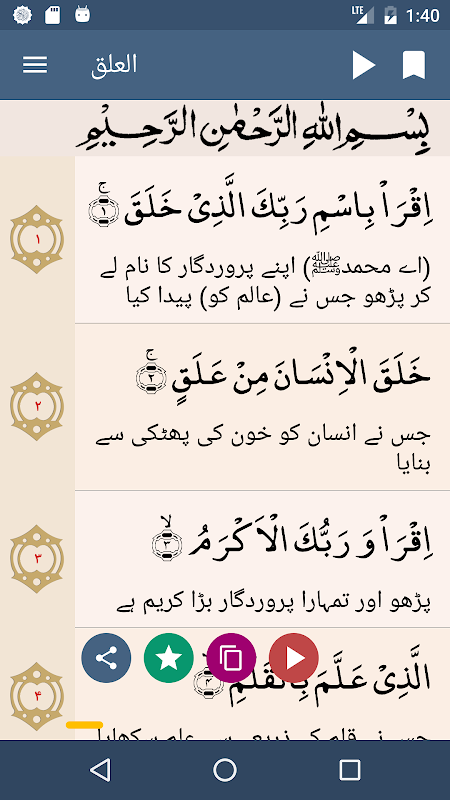 LTE 1:40
العلق
بِسْمِ اللهِ الرَّحْمٰنِ الرَّحِيْمِ
اِقْرَاْ بِاسْمِ رَبِّكَ الَّذِىْ خَلَقَ ۚ‏ ﴿۱﴾
۱
(اے محمدﷺ) اپنے پروردگار کا نام لے
کر پڑھو جس نے (عالم کو) پیدا کیا
خَلَقَ الْاِنْسَانَ مِنْ عَلَقٍ ۚ‏ ﴿۲﴾
۲
جس نے انسان کو خون کی پھٹکی سے
بنایا
اِقْرَاْ وَ رَبُّكَ الْاَكْرَمُ ۙ‏ ﴿۳﴾
۳
پڑھو اور تمہارا پروردگار بڑا کریم ہے
الَّذِىْ عَلَّمَ بِالْقَلَمِ ﴿۴﴾
۴
جس نے قلم کے ذریعے سے علم سکھایا